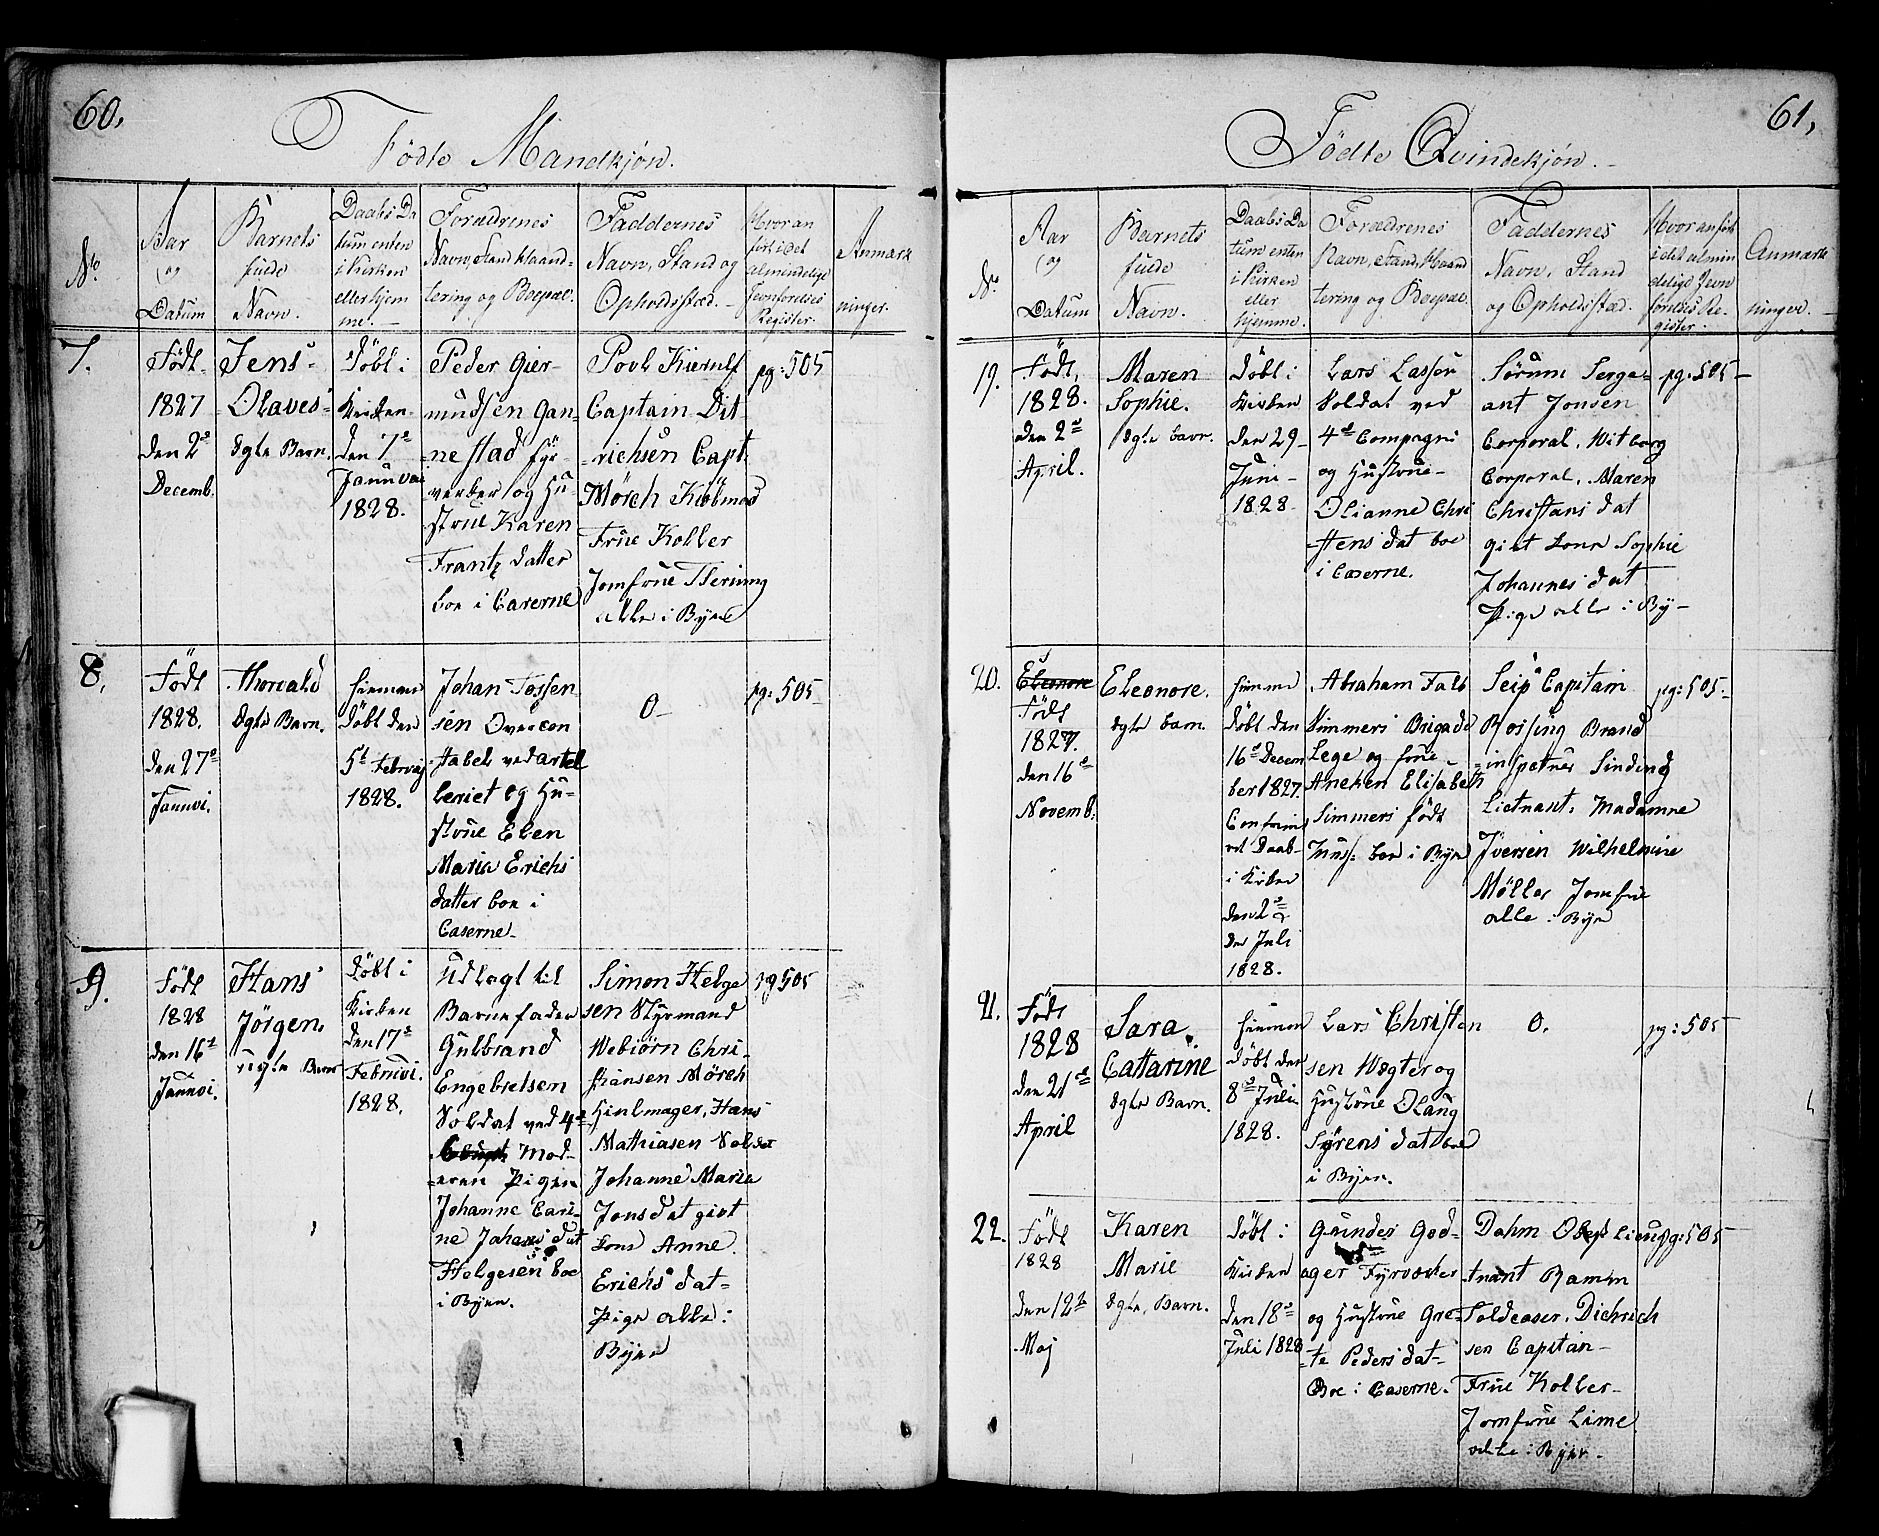 60.
Födte Mandkjön.
No.
Aar
og
Datum
Barnets
fulde
Navn.
Daabs Da
tum enten
i Kirken
eller hjem
me.
Forældrenes
Navn, Stand Haand-
tering og Boepæl.
Faddernes
Navn, Stand og
Opholdsstæd.
Hvor an
fört i det
almindelige
Jevnförelses
Register.
Anmærk
ninger.
7.
Födt
1827
den 2d
Decemb.
Jens
Olaves
ægte Barn.
Döbt i
Kirken
den 7d
Januvai
1828.
Peder Gier-
mundsen Gan-
nestad fyr-
verker og Hu-
strue Karen
Frantz datter
boe i Caserne
Povl Kierulf
Captain Dit-
richsen Capt.
Mörch Kiöbmad
Frue Koller
Jomfrue
alle i Byen
pg: 505
8.
Födt
1828.
den 27d
Januvi.
Thorvald
ægte Barn.
hiemme
döbt den
5t Februaj
1828.
Johan Tossen
sen Overcon
stabel ved artel
leriet og Hu-
strue Elen
Maria Erichs
datter boe i
Caserne
0-
pg: 505
9.
Födt
1828
den 16t
Januvi.
Hans
Jörgen
uegte Barn
Döbt i
Kirken
den 17d
Februvi.
1828.
Udlagt til
Barnefader
Gulbrand
Engebretsen
Soldat ved 4d
Mod-
eren Pigen
Johanne Cari-
ne Johanes dat
Helgesen boe
i Byen.
Simon Helge
sen Styrmand
Webiörn Chri-
stiansen Mörch
Hiulmager, Hans
Mathiasen Soldat
Johanne Marie
Jonsdat givt
Kone Anne
Erichs dat-
Pige alle i
Byen
pg 505
61.
Födte Qvindekjön.
No.
Aar
og
Datum
Barnets
fulde
Navn.
Daabs Da
tum enten
i Kirken
eller
hjemme.
Forældrenes
Navn, Stand, Haand
tering og Boepæl.
Faddernes
Navn, Stand
og Opholdsstæd.
Hvor anfört
i det almin
delige Jevn
förelses Re-
gister.
Anmærk
ninger.
19.
Födt
1828.
den 2d
April.
Maren
Sophie.
ægte barn.
Döbt i
Kirken
den 29-
Juni-
1828.
Lars Lassen
Soldat ved
4d Compagni
og Hustrue-
Olianne Chri
stens dat boe
i Caserne.
Sörum Serge-
ant Jonsen
Corporal, Witborg
Corporal, Maren
Christans dat
givt kone Sophie
Johannes dat
Pige alle i By-
pg: 505-
20.
Eleonore
Födt
1827.
den 16d
Novemb.
Eleonore.
ægte barn.
hiemme
döbt den
16d Decem
ber 1827.
Confirme
ret Daab-
i Kirken
den 2d
de Juli
1828.
Abraham Falk
Simmers Brigade
Lege og frue
Aneken Elisabeth
Simmers födt
boe i Byen
Seip Capitain
Rossing Brand
inspetnes Sinding
Lietnant, Madamme
Jversen Wilhelmine
Möller Jomfrue
alle i Byen
pg: 505-
21.
Födt
1828
den 21d
April
Sara
Cattarine
ægte Barn.
hiemme
döbt den
8d Juli
1828.
Lars Christen
sen Wægter og
Hustrue Olaug
Syrens dat boe
i Byen.
0.
pg: 505
22.
Födt
1828
den 12t
Maj
Karen
Marie
ægte, Barn.
Döbt i
Kirken
den 18d
Juli 1828
Gundes God-
ager Fyrvecker
og Hustrue Gre-
te Peders dat-
Boe i Caserne.
Dahm Lieu-
tnant Ramm
Toldcaser. Diehrich
sen Capitan-
Frue Koller-
Jomfrue Lime
alle i Byen-
pg: 505